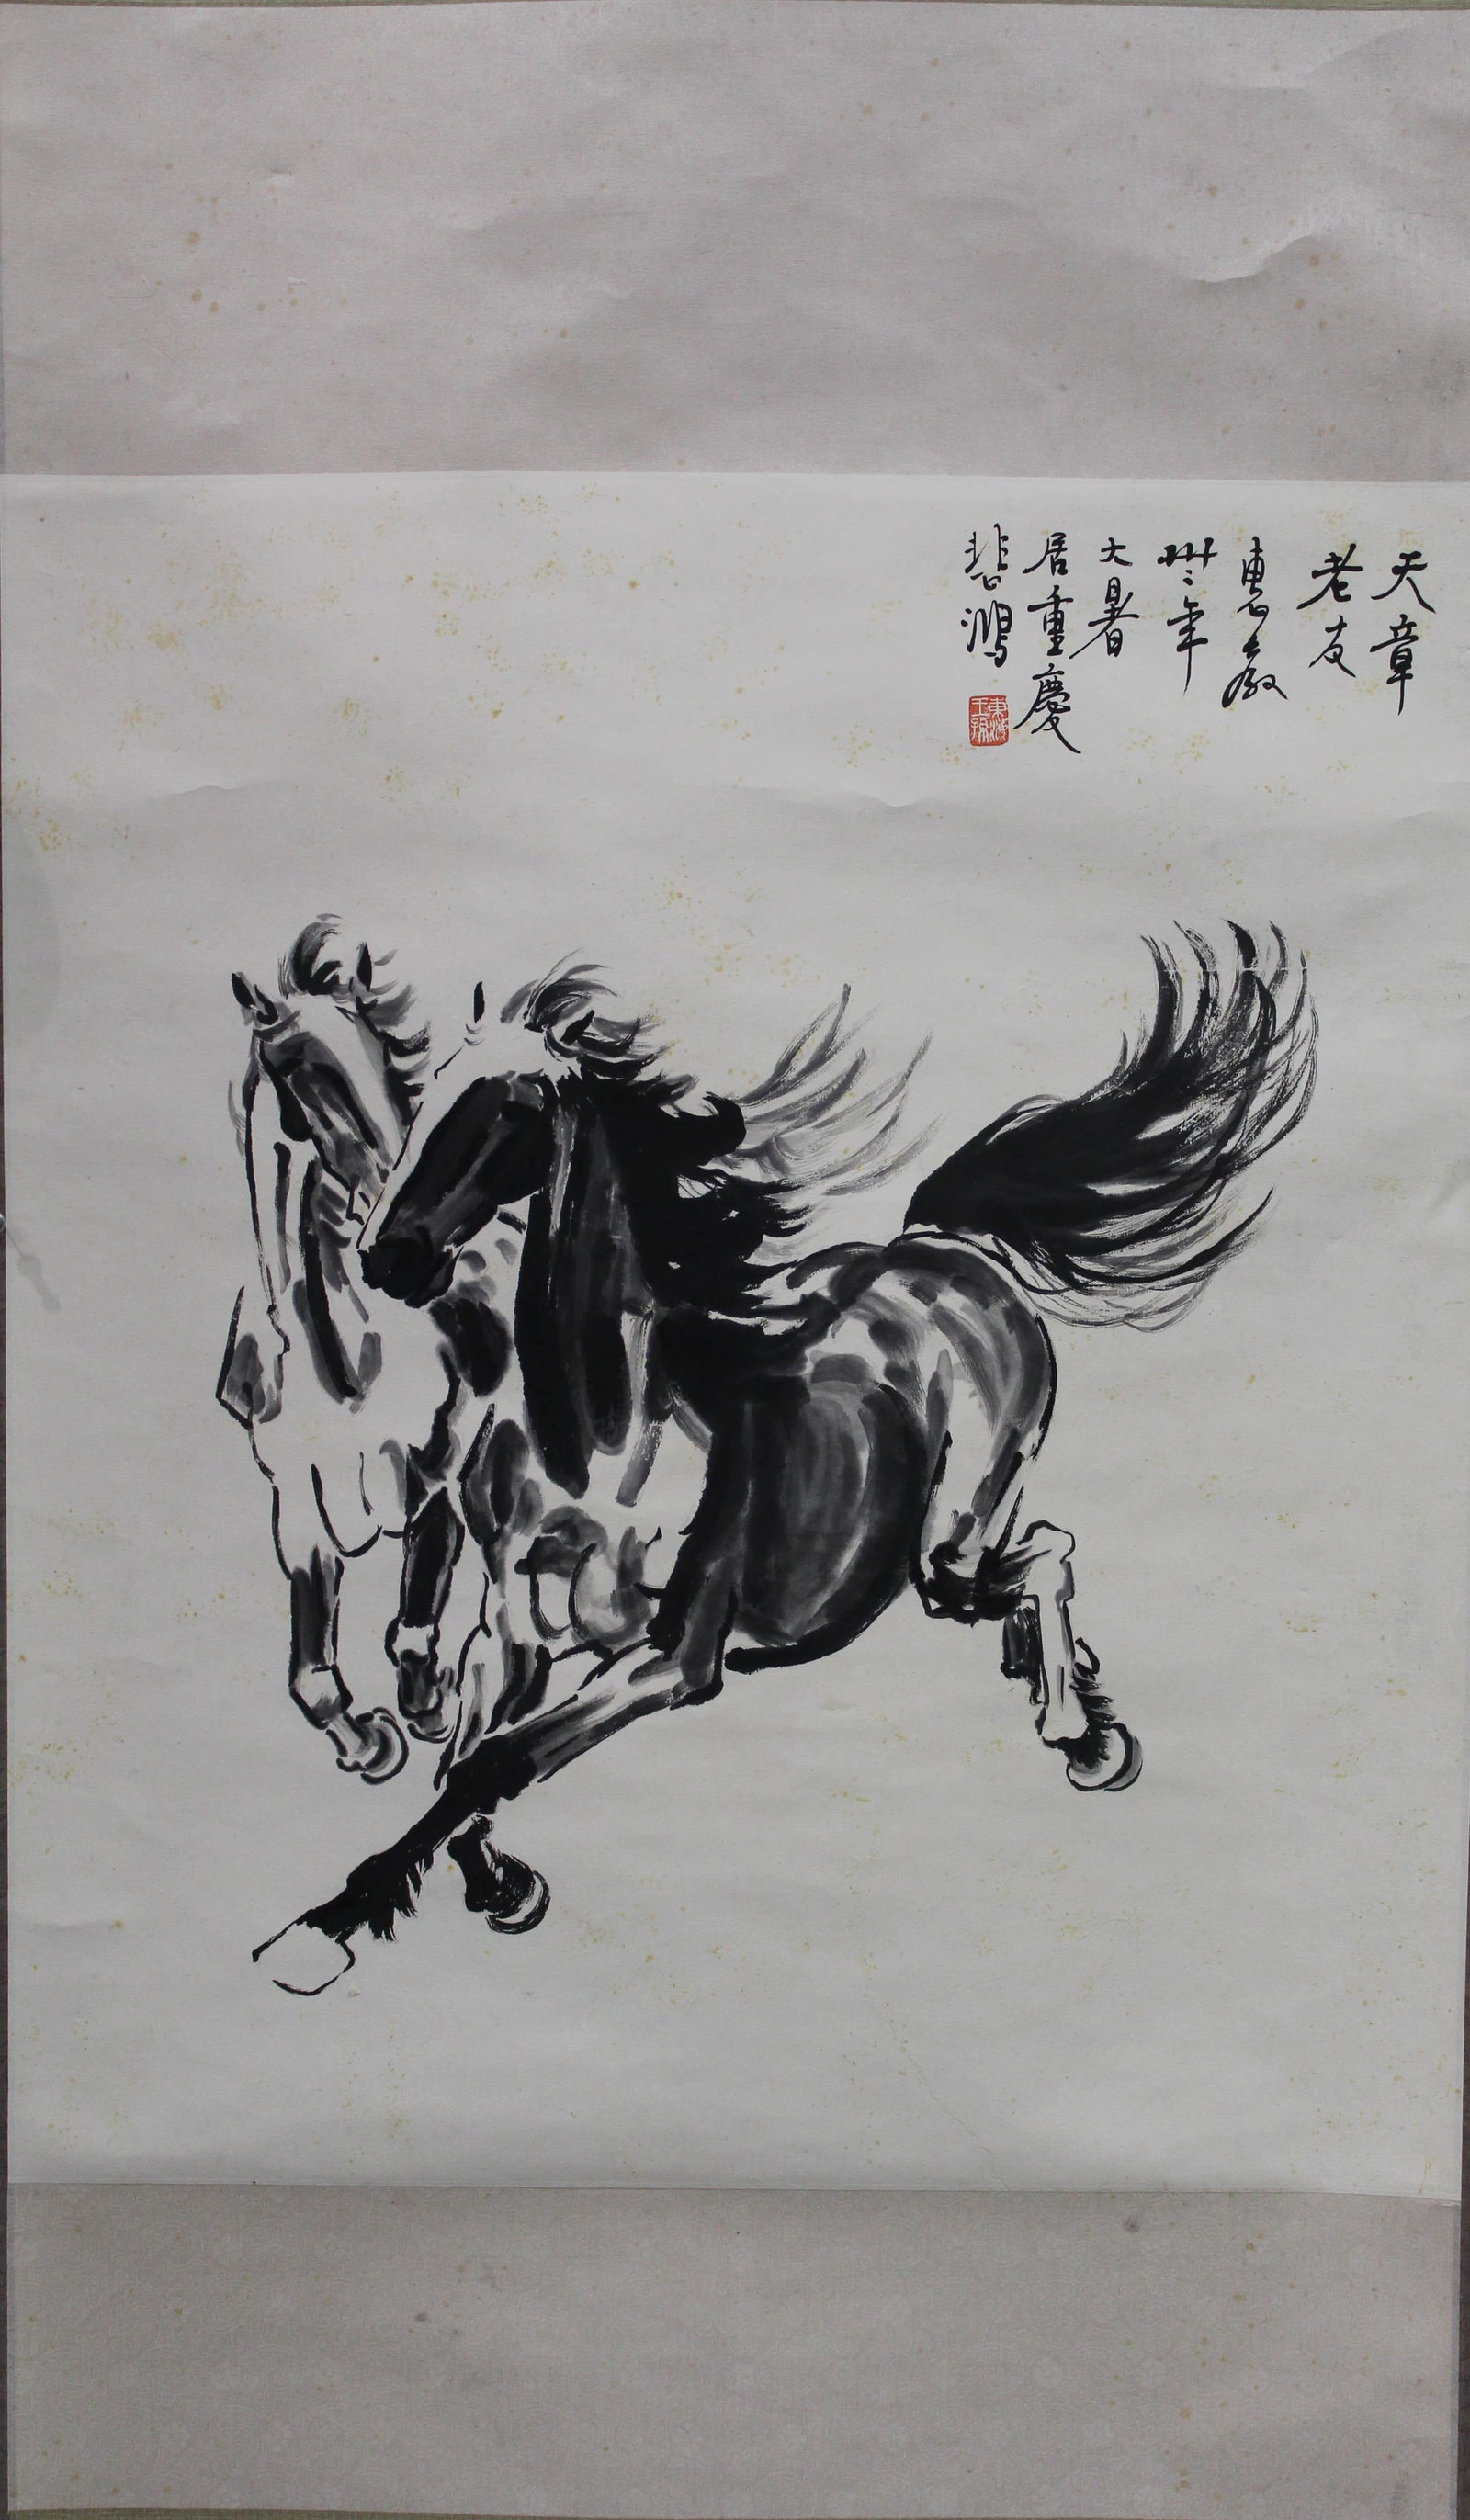 天章
老友
惠教
卅二年
大暑
居重慶
悲鴻
東海
王孫